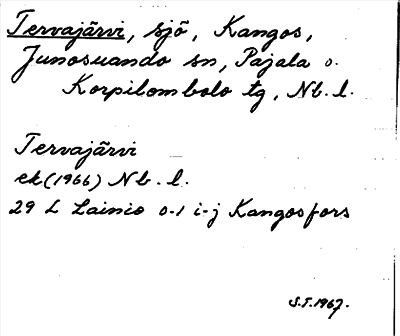 Tervajärvi, sjö, Kangos,
Junosuando sn, Pajala o.
Korpilombolo tg, Nb. l.
Tervajärvi
ek (1966) Nb. l.
29 L Lainio 0-1 i-j Kangosfors
S.T. 1967.